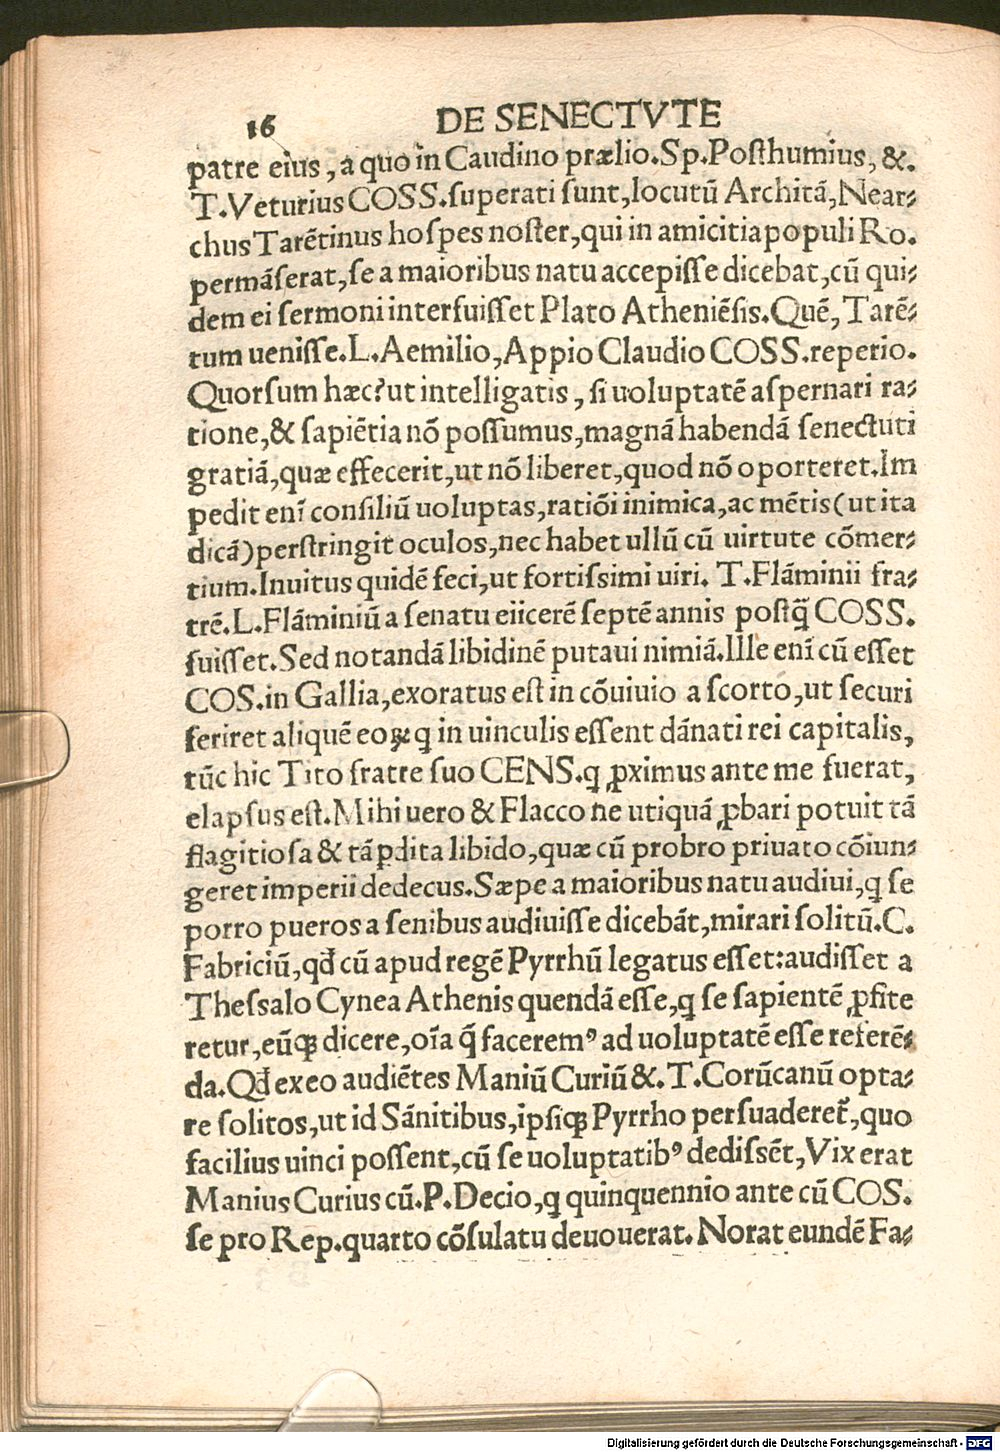 16 DE SENECTVTE
patre eius, a quo in Caudino prælio. Sp. Posthumius, &.
T. Veturius COSS. superati sunt, locutũ Architã, Near⸗
chus Tarẽtinus hospes noster, qui in amicitia populi Ro.
permãserat, se a maioribus natu accepisse dicebat, cũ qui⸗
dem ei sermoni interfuisset Plato Atheniẽsis. Quẽ, Tarẽ⸗
tum uenisse. L. Aemilio, Appio Claudio COSS. reperio.
Quorsum hæc? ut intelligatis, si uoluptatẽ aspernari ra⸗
tione, & sapiẽtia nõ possumus, magnã habendã senectuti
gratiã, quæ effecerit, ut nõ liberet, quod nõ oporteret. Im
pedit enĩ consiliũ uoluptas, ratiõi inimica, ac mẽtis (ut ita
dicã) perstringit oculos, nec habet ullũ cũ uirtute cõmer⸗
tium. Inuitus quidẽ feci, ut fortissimi uiri. T. Flãminii fra⸗
trẽ. L. Flãminiũ a senatu eiicerẽ septẽ annis postq̃ COSS.
fuisset. Sed notandã libidinẽ putaui nimiã. Ille enĩ cũ esset
COS. in Gallia, exoratus est in cõuiuio a scorto, ut securi
feriret aliquẽ eoꝝ ꝗ in uinculis essent dãnati rei capitalis,
tũc hic Tito fratre suo CENS. ꝗ ꝓximus ante me fuerat,
elapsus est. Mihi uero & Flacco ne utiquã ꝓbari potuit tã
flagitiosa & tã ꝑdita libido, quæ cũ probro priuato cõiun⸗
geret imperii dedecus. Sæpe a maioribus natu audiui, ꝗ se
porro pueros a senibus audiuisse dicebãt, mirari solitũ. C.
Fabriciũ, qđ cũ apud regẽ Pyrrhũ legatus esset: audisset a
Thessalo Cynea Athenis quendã esse, ꝗ se sapientẽ ꝓfite
retur, eũꝗ dicere, oĩa q̃ faceremꝰ ad uoluptatẽ esse referẽ⸗
da. Qđ ex eo audiẽtes Maniũ Curiũ &. T. Corũcanũ opta⸗
re solitos, ut id Sãnitibus, ipsiꝗ Pyrrho persuaderet̃, quo
facilius uinci possent, cũ se uoluptatibꝰ dedissẽt, Vixerat
Manius Curius cũ. P. Decio, ꝗ quinquennio ante cũ COS.
se pro Rep. quarto cõsulatu deuouerat. Norat eundẽ Fa⸗
Digitalisierung gefördert durch die Deutsche Forschungsgemeinschaft - DFG